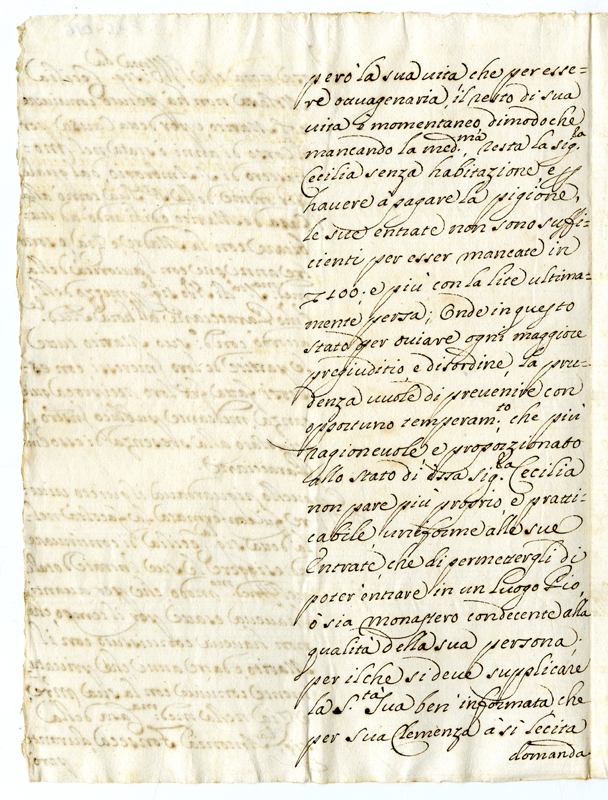 però la sua vita che per esse=
re ottuagenaria, il resto di sua
vita è momentaneo, dimodoche
mancando la med.ma resta la sig.ra
Cecilia senza habitazione, e
havere à pagare la pigione,
le sue entrate non sono suffi=
cienti per esser mancate in
100, e più con la lite ultima=
mente persa; Onde in questo
stato per oviare ogni maggiore
pregiuditio e disordine, la pru=
denza vuole di prevenire con
opportuno temperam.to che più
ragionevole e proporzionato
allo stato di essa Sig.ra Cecilia
non pare più proprio, e prati=
cabile uniforme alle sue
Entrate che di permettergli di
poter entrare in un Luogo Pio,
ò sia monastero condecente alla
qualità della sua persona;
per il che si deve supplicare
la S.tà Sua ben informata, che
per sua Clemenza à si lecita
domanda